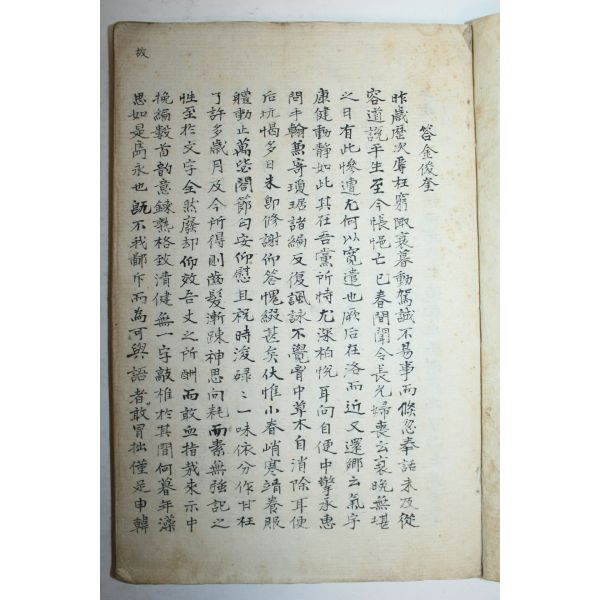 答金後奎
昨歲歷次辱枉窮陬衰暮動駕誠不易事而倏忽奉話未及從
容道說平生至今悵悒亡已春間聞令長允婦喪云衰晩無堪
之日有此慘遭尤何以寬遣也厥后在洛而近又還鄕云氣字
康健動靜如此其在吾黨所恃尤深柏悅耳向自便中擎承惠
問手翰兼寄瓊琚諸編反復諷詠不覺胷中草木自消除耳便
后坑惕多日未卽修謝仰答愧綴甚矣伏惟小春峭寒靖養服
體動止萬毖閤節勻安仰慰且祝時浚碌〻一味依分作甘枉
了許多歲月及今所得則齒髮漸踈神思向耗而素無強記之
性至於文字全然廢却仰效吾丈之所酬而敢血指哉來示中
挽編數首韵意鍊熟格致淸健無一字敲椎於其間何暮年藻
思如是雋永也旣不我鄙斥而爲可與語者敢冒拙僅足申韓
故